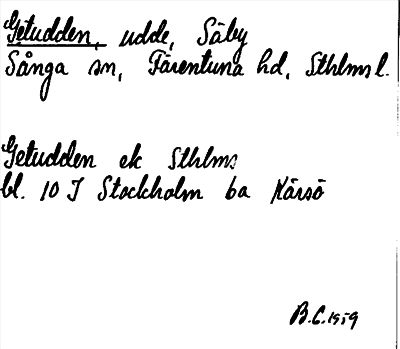 Getudden, udde, Säby
Sånga sn, Färentuna hd, Sthlms l.
Getudden ek Sthlms
bl. 10 I Stockholm ba Kärsö
B.C. 1959